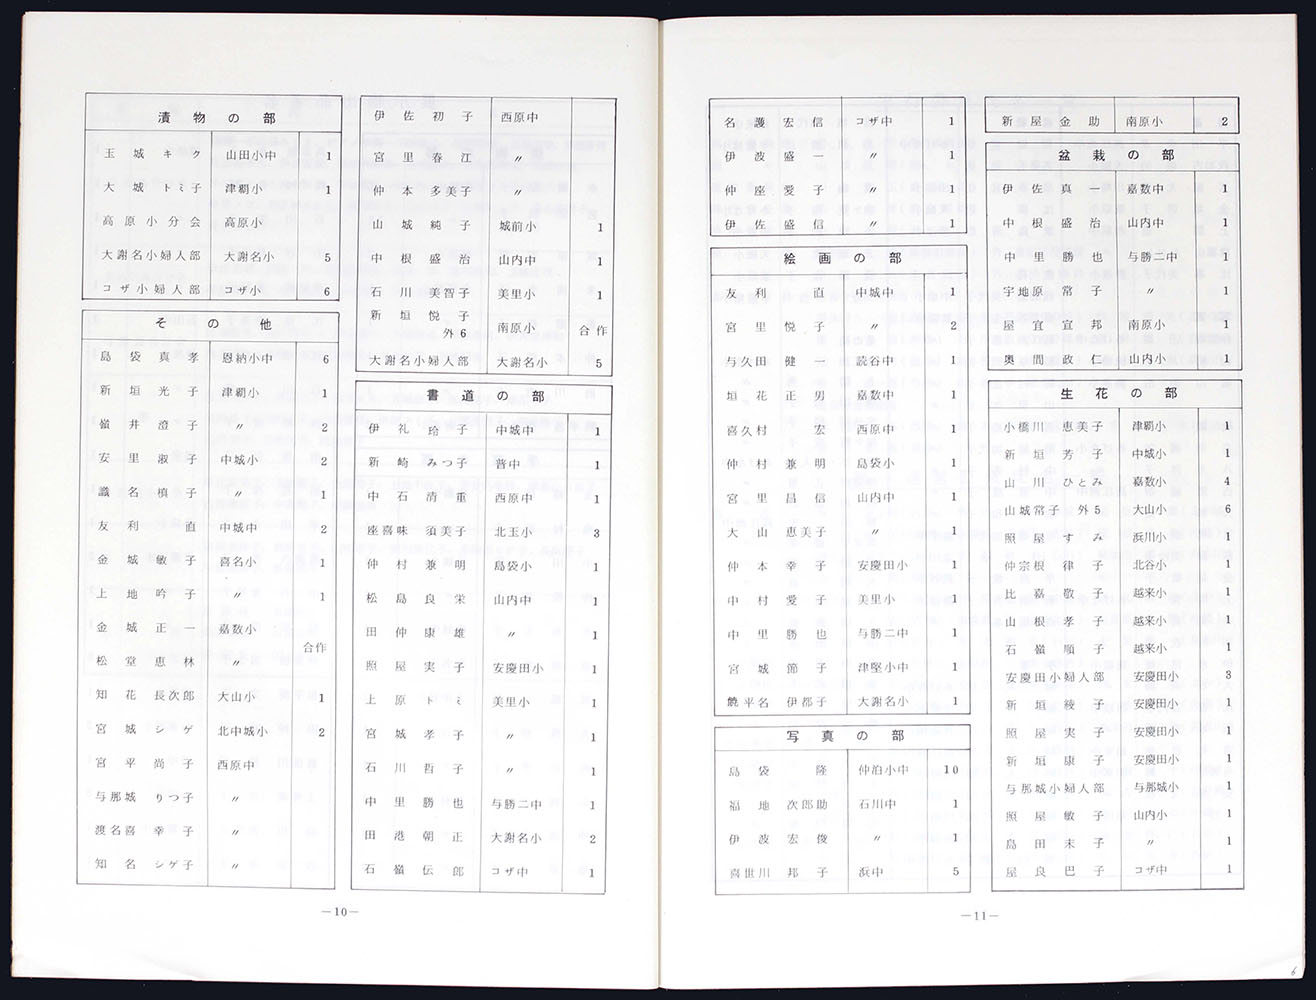 漬物の部
玉城キク 山田小中 1
大城トミ子 津覇小 1
高原小分会 高原小
大謝名小婦人部 大謝名小 5
コザ小婦人部 コザ小 6
その他
島袋真孝 恩納小中 6
新垣光子 津覇小 1
嶺井澄子 〃 2
安里淑子 中城小 2
識名槙子 〃 1
友利直 中城中 2
金城敏子 喜名小 1
上地吟子 〃 1
金城正一 嘉数小
合作
松堂恵林 〃
知花長次郎 大山小 1
宮城シゲ 北中城小 2
宮平尚子 西原中
与那城りつ子 〃
渡名喜幸子 〃
知名シゲ子 〃
伊佐初子 西原中
宮里春江 〃
仲本多美子 〃
山城純子 城前小 1
中根盛治 山内中 1
石川美智子 美里小 1
新垣悦子
外6 南原小 合作
大謝名小婦人部 大謝名小 5
書道の部
伊礼玲子 中城中 1
新崎みつ子 普中 1
中石清重 西原中 1
座喜味須美子 北玉小 3
仲村兼明 島袋小 1
松島良栄 山内中 1
田仲康雄 〃 1
照屋実子 安慶田小 1
上原トミ 美里小 1
宮城孝子 〃 1
石川哲子 〃 1
中里勝也 与勝二中 1
田港朝正 大謝名小 2
石嶺伝郎 コザ中 1
—10—
名護宏信 コザ中 1
伊波盛一 〃 1
仲座愛子 〃 1
伊佐盛信 〃 1
絵画の部
友利直 中城中 1
宮里悦子 〃 2
与久田健一 読谷中 1
垣花正男 嘉数中 1
喜久村宏 西原中 1
仲村兼明 島袋小 1
宮里昌信 山内中 1
大山恵美子 〃 1
仲本幸子 安慶田小 1
中村愛子 美里小 1
中里勝也 与勝二中 1
宮城節子 津堅小中 1
饒平名伊都子 大謝名小 1
写真の部
島袋隆 仲泊小中 10
福地次郎助 石川中 1
伊波宏俊 〃 1
喜世川邦子 浜中 5
新屋金助 南原小 2
盆栽の部
伊佐真一 嘉数中 1
中根盛治 山内中 1
中里勝也 与勝二中 1
宇地原常子 〃 1
屋宜宣邦 南原小 1
奥間政仁 山内小 1
生花の部
小橋川恵美子 津覇小 1
新垣芳子 中城小 1
山川ひとみ 嘉数小 4
山城常子 外5 大山小 6
照屋すみ 浜川小 1
仲宗根律子 北谷小 1
比嘉敬子 越来小 1
山根孝子 越来小 1
石嶺順子 越来小 1
安慶田小婦人部 安慶田小 3
新垣綾子 安慶田小 1
照屋実子 安慶田小 1
新垣康子 安慶田小 1
与那城小婦人部 与那城小 1
照屋敏子 山内小 1
島田末子 〃 1
屋良巴子 コザ中 1
—11—
6